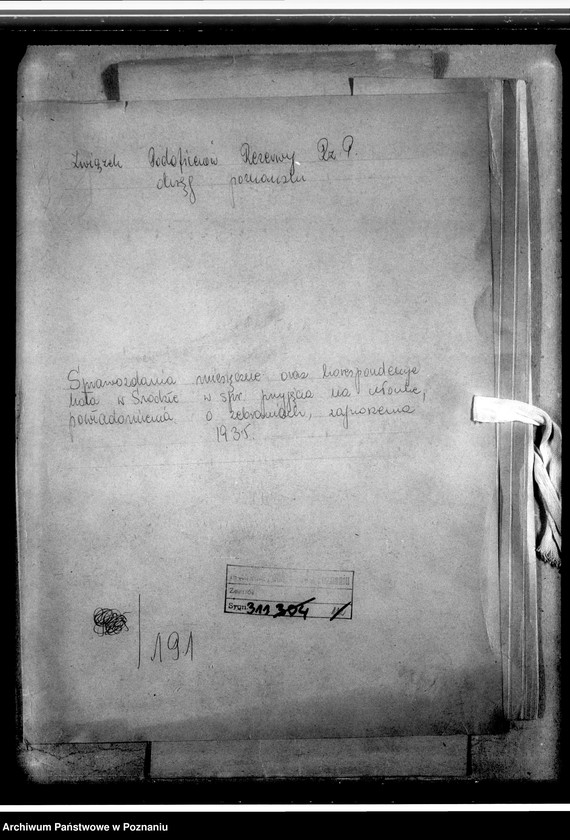 Związek Podoficerów Rezerwy Rz. P.
okręg poznański
Sprawozdania miesięczne oraz korespondencja
koła w Środzie w spr. przyjęcia na członka,
powiadomienia o zebraniach, zaproszenia
1935.
Zespół
Sygn. 311 304
191
Archiwum Państwowe w Poznaniu